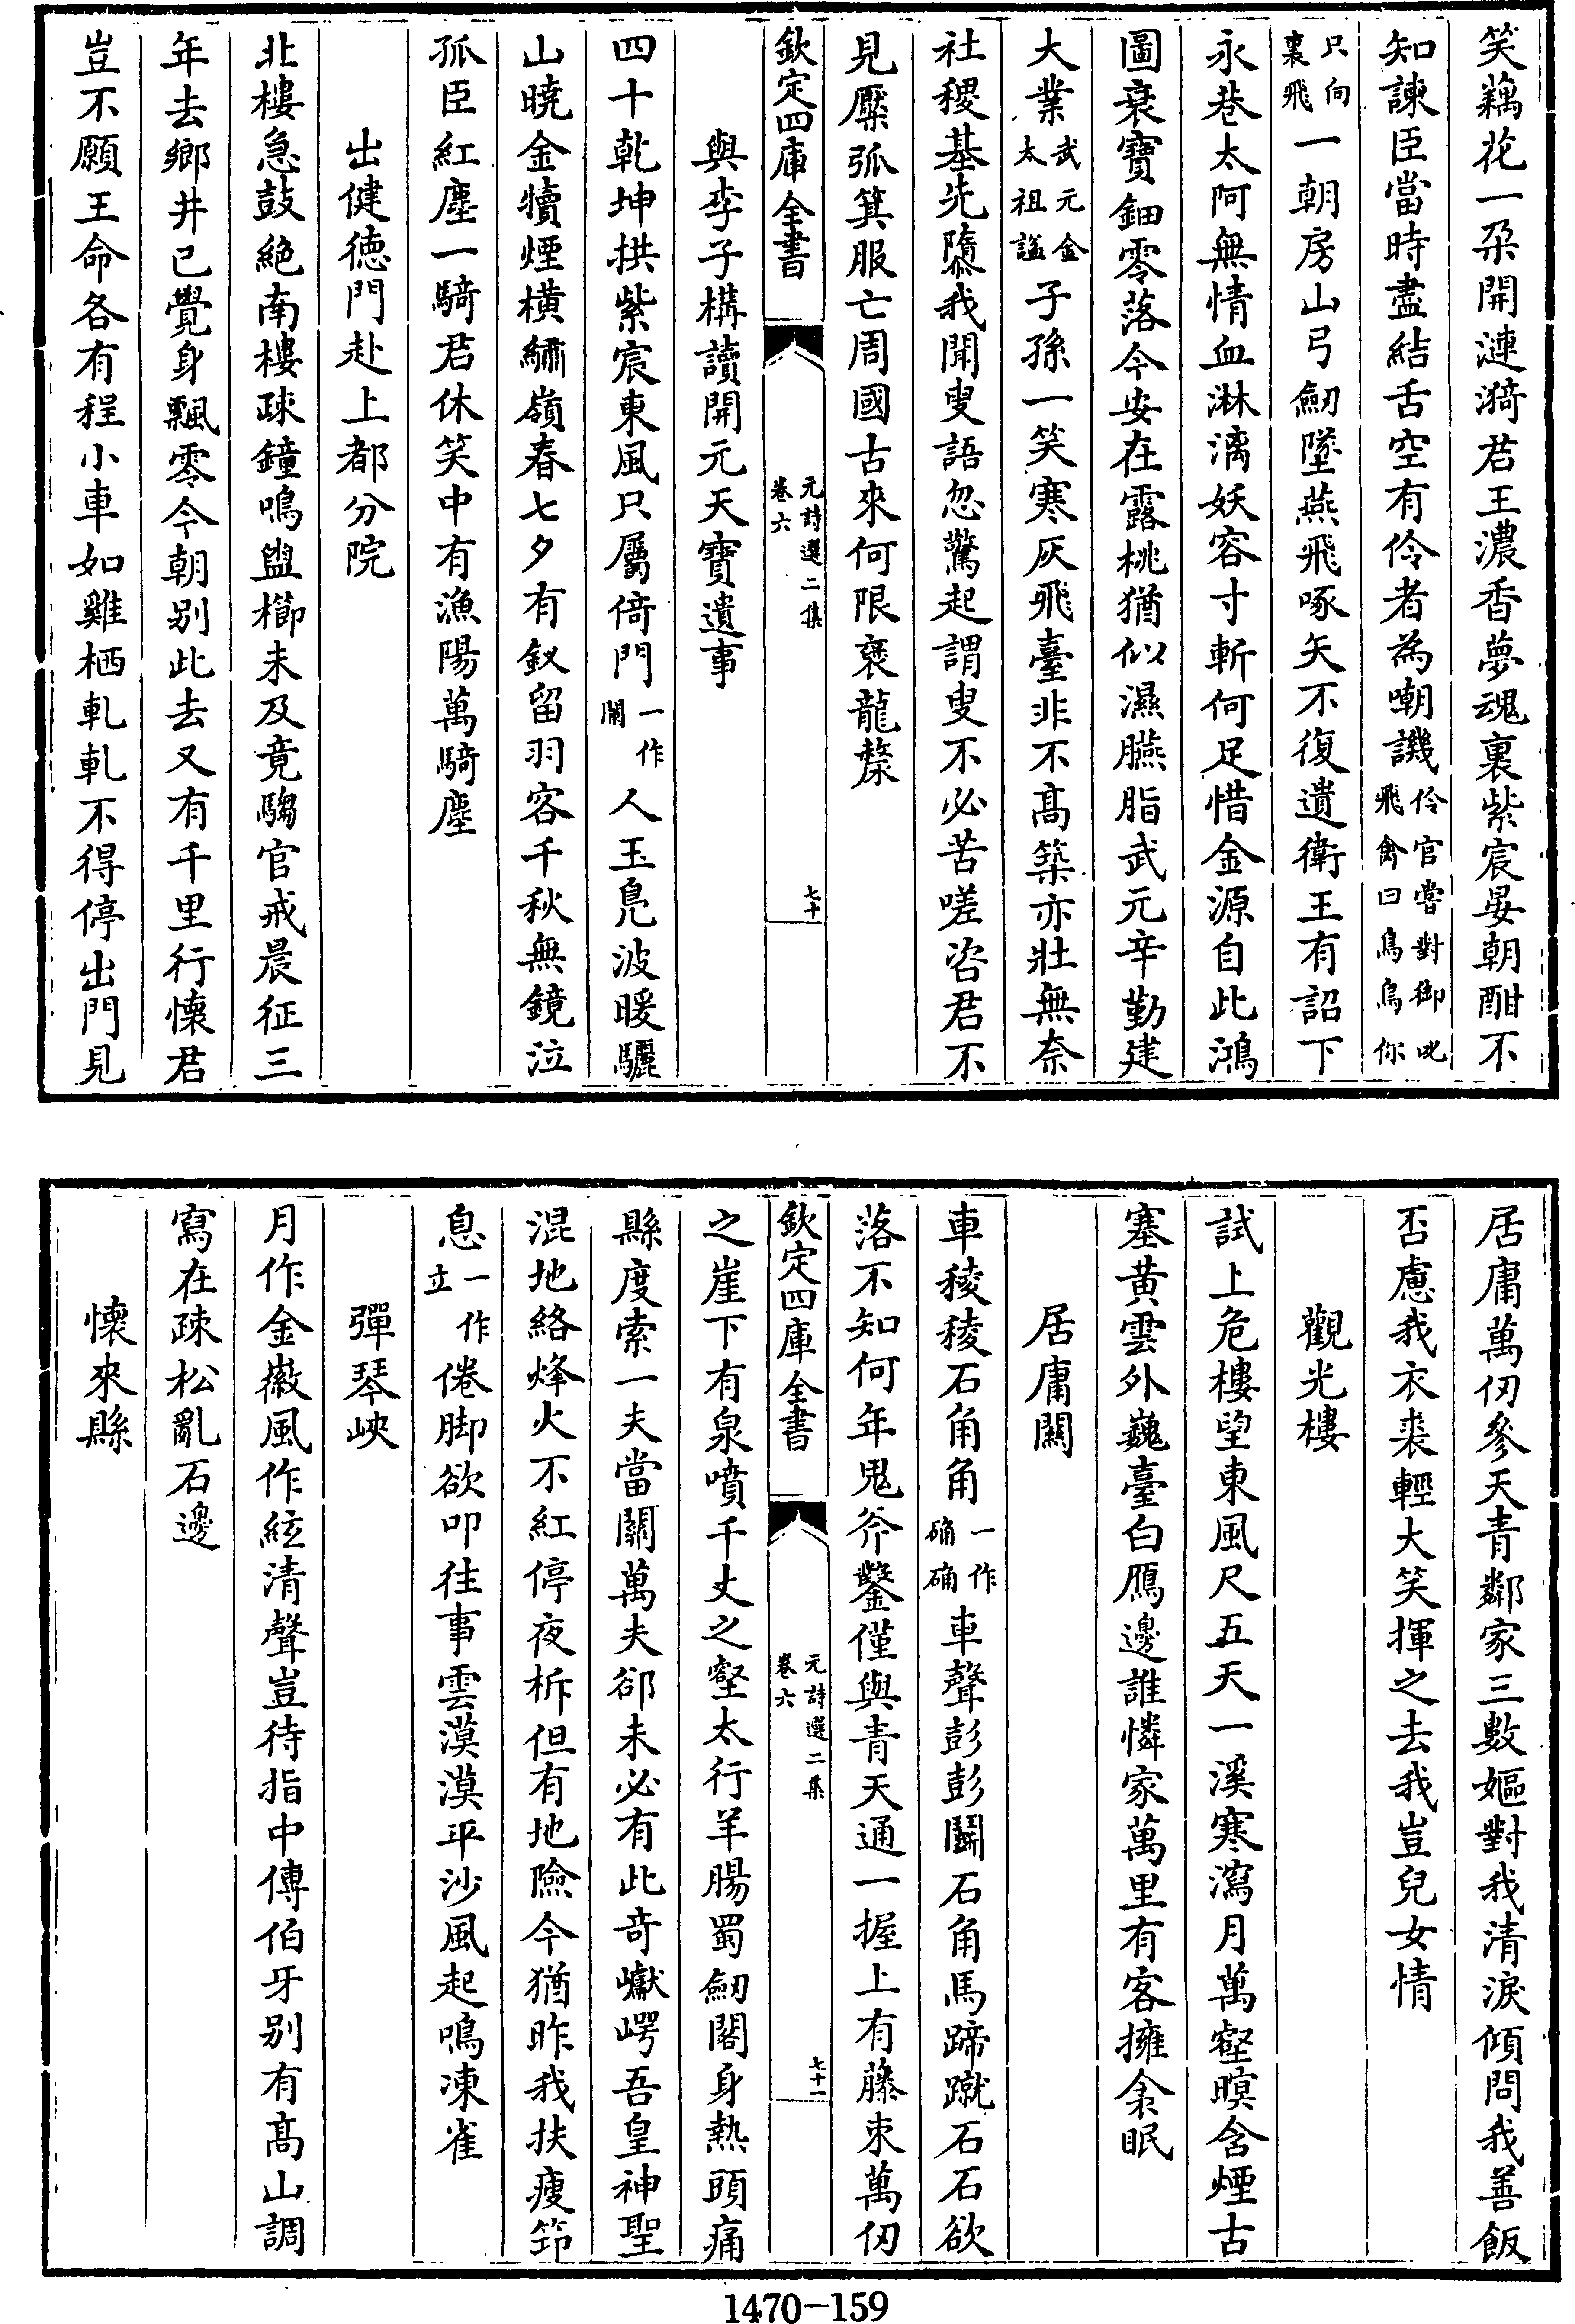 笑藕花一朶開漣漪君王濃香夢魂裏紫宸晏朝酣不
知諫臣當時盡結舌空有伶者為嘲譏伶官嘗對御叱飛禽曰鳥鳥你
只向裏飛一朝房山弓劒墜燕飛啄矢不復遺衛王有詔下
永巷太阿無情血淋漓妖容寸斬何足惜金源自此鴻
圖衰寶鈿零落今安在露桃猶似濕臙脂武元辛勤建
大業武元金太祖諡子孫一笑寒灰飛臺非不髙築亦壯無奈
社稷基先隳我聞叟語忽驚起謂叟不必苦嗟咨君不
見檿弧箕服亡周國古來何限褒龍漦
欽定四庫全書
元詩選二集
卷六
七十
與李子構讀開元天寶遺事
四十乾坤拱紫宸東風只屬倚門一作闌人玉鳬波暖驪
山曉金犢煙横繡嶺春七夕有釵留羽客千秋無鏡泣
孤臣紅塵一騎君休笑中有漁陽萬騎塵
出健德門赴上都分院
北樓急鼓絶南樓疎鐘鳴盥櫛未及竟騶官戒晨征三
年去鄉井已覺身飄零今朝别此去又有千里行懷君
豈不願王命各有程小車如雞栖軋軋不得停出門見
居庸萬仞參天青鄰家三數嫗對我清淚傾問我善飯
否慮我衣裘輕大笑揮之去我豈兒女情
觀光樓
試上危樓望東風尺五天一溪寒瀉月萬壑暝含煙古
塞黄雲外巍臺白鴈邊誰憐家萬里有客擁衾眠
居庸關
車稜稜石角角一作确确車聲彭彭鬭石角馬蹄蹴石石欲
落不知何年鬼斧鑿僅與青天通一握上有藤束萬仞
欽定四庫全書
元詩選二集
卷六
七十一
之崖下有泉噴千丈之壑太行羊腸蜀劒閣身熱頭痛
縣度索一夫當關萬夫郤未必有此竒巘崿吾皇神聖
混地絡烽火不紅停夜柝但有地險今猶昨我扶瘦筇
息一作立倦脚欲叩往事雲漠漠平沙風起鳴凍雀
彈琴峽
月作金徽風作絃清聲豈待指中傳伯牙别有髙山調
寫在疎松亂石邊
懷來縣
1470—159